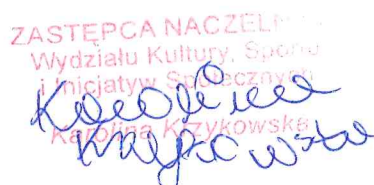 ZASTĘPCA NACZELNIKA
Wydziału Kultury, Sportu
i Inicjatyw Społecznych
Karolina Krzykowska
Karolina
Krzykowska